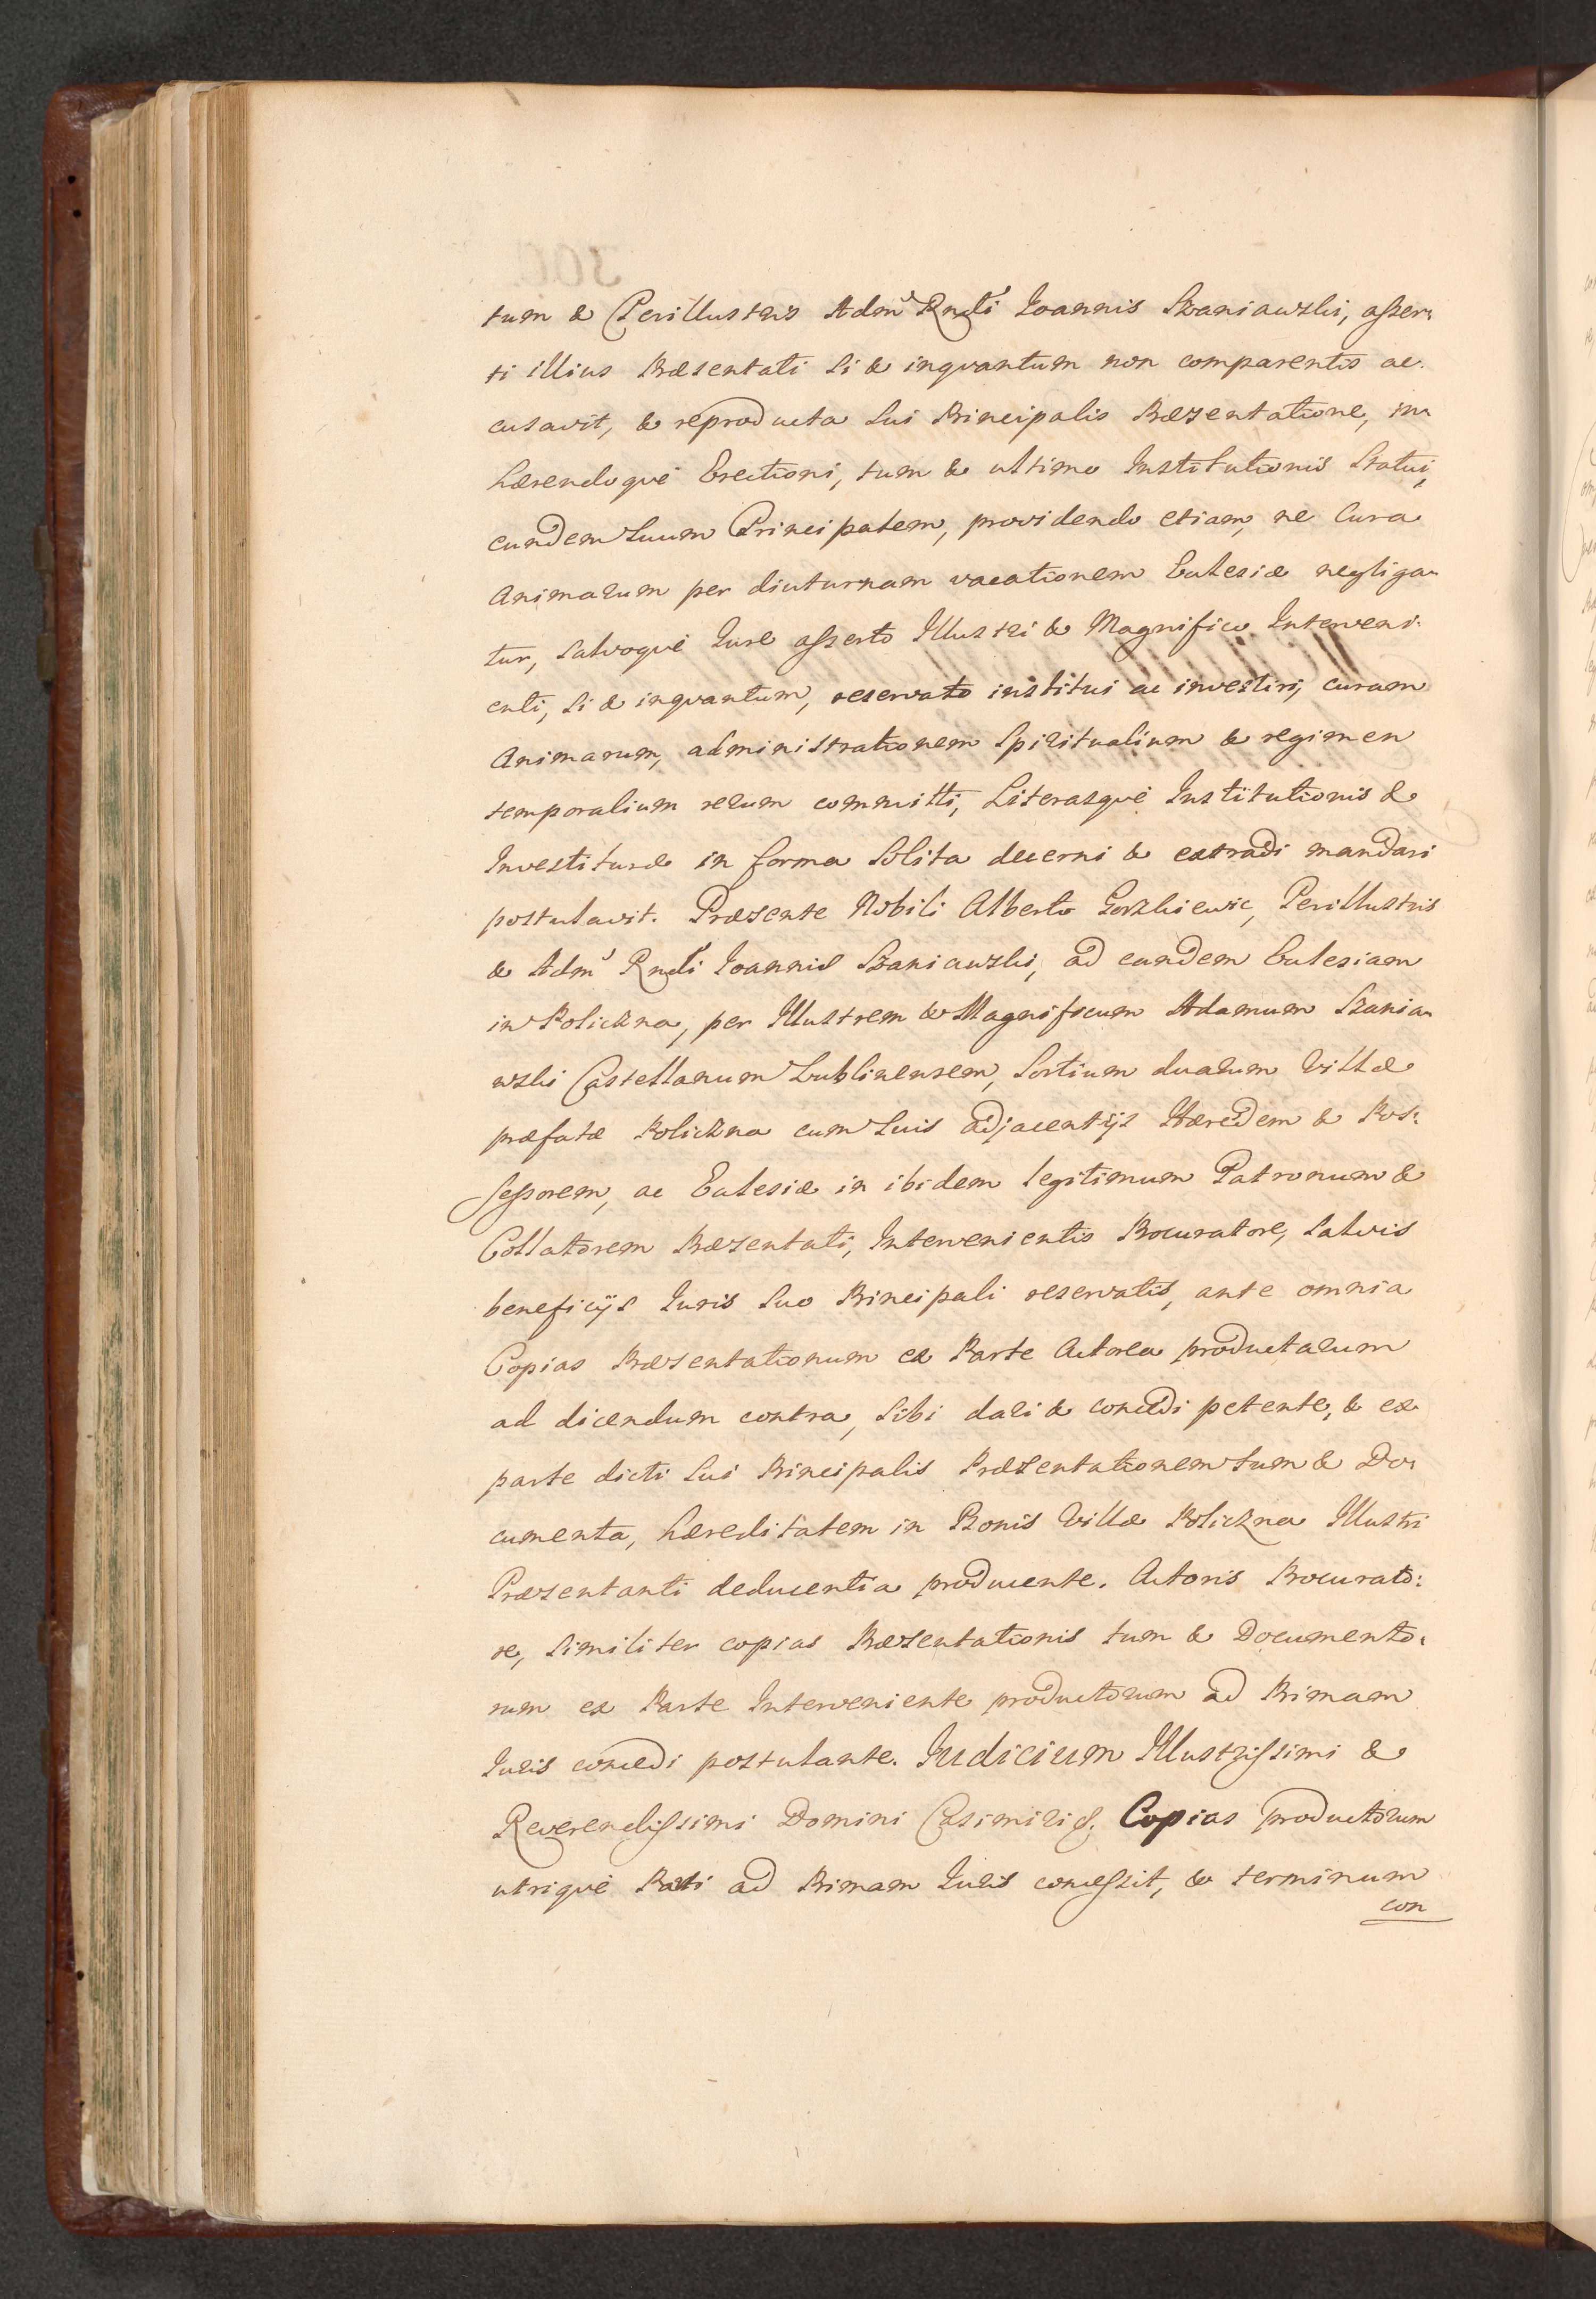 tum & Perillustris Adm Rndi Joannis Szaniawski, asser-
ti illius Præsentati si & inqvantum non comparentis ac-
cusavit, & reproducta sui Principalis Præsentatione, in-
hærendoqve Erectioni, tum & ultimo Institutionis Statui,
eundem suum Principalem, providendo etiam, ne Cura
Animarum per diuturnam vacationem Eclesiæ negliga-
tur, salvoqve Jure asserto Illustri & Magnifico Interveni-
enti, si & inqvantum, reservato institui ac investiri, curam
Animarum, administrationem Spiritualium & regimen
temporalium rerum committi, Literasqve Institutionis &
Investituræ in forma solita decerni & extradi mandari
postulavit. Præsente Nobili Alberto Gorzkiewic, Perillustris
& Adm Rndi Joannis Szaniawski, ad eandem Eclesiam
in Policzna, per Illustrem & Magnificum Adamum Szania-
wski Castellanum Lublinensem, Sortium duarum Villæ
præfatæ Policzna cum suis adjacentijs Hæredem & Pos-
sessorem, ac Eclesiæ in ibidem legitimum Patronum &
Collatorem Præsentati, Intervenientis Procuratore, salvis
beneficijs Juris suo Principali reservatis, ante omnia
Copias Præsentationum ex Parte Actorea productarum
ad dicendum contra, sibi dari & concedi petente, & ex
parte dicti sui Principalis Præsentationem tum & Do-
cumenta, hæreditatem in Bonis Villæ Policzna Illustri
Præsentanti deducentia producente. Actoris Procurato-
re, similiter copias Præsentationis tum & Documento-
rum ex Parte Interveniente productorum ad Primam
Juris concedi postulante. Judicium Illustrissimi &
Reverendissimi Domini Casimiri &. Copias productorum
utriqve Parti ad Primam Juris concessit, & terminum
con